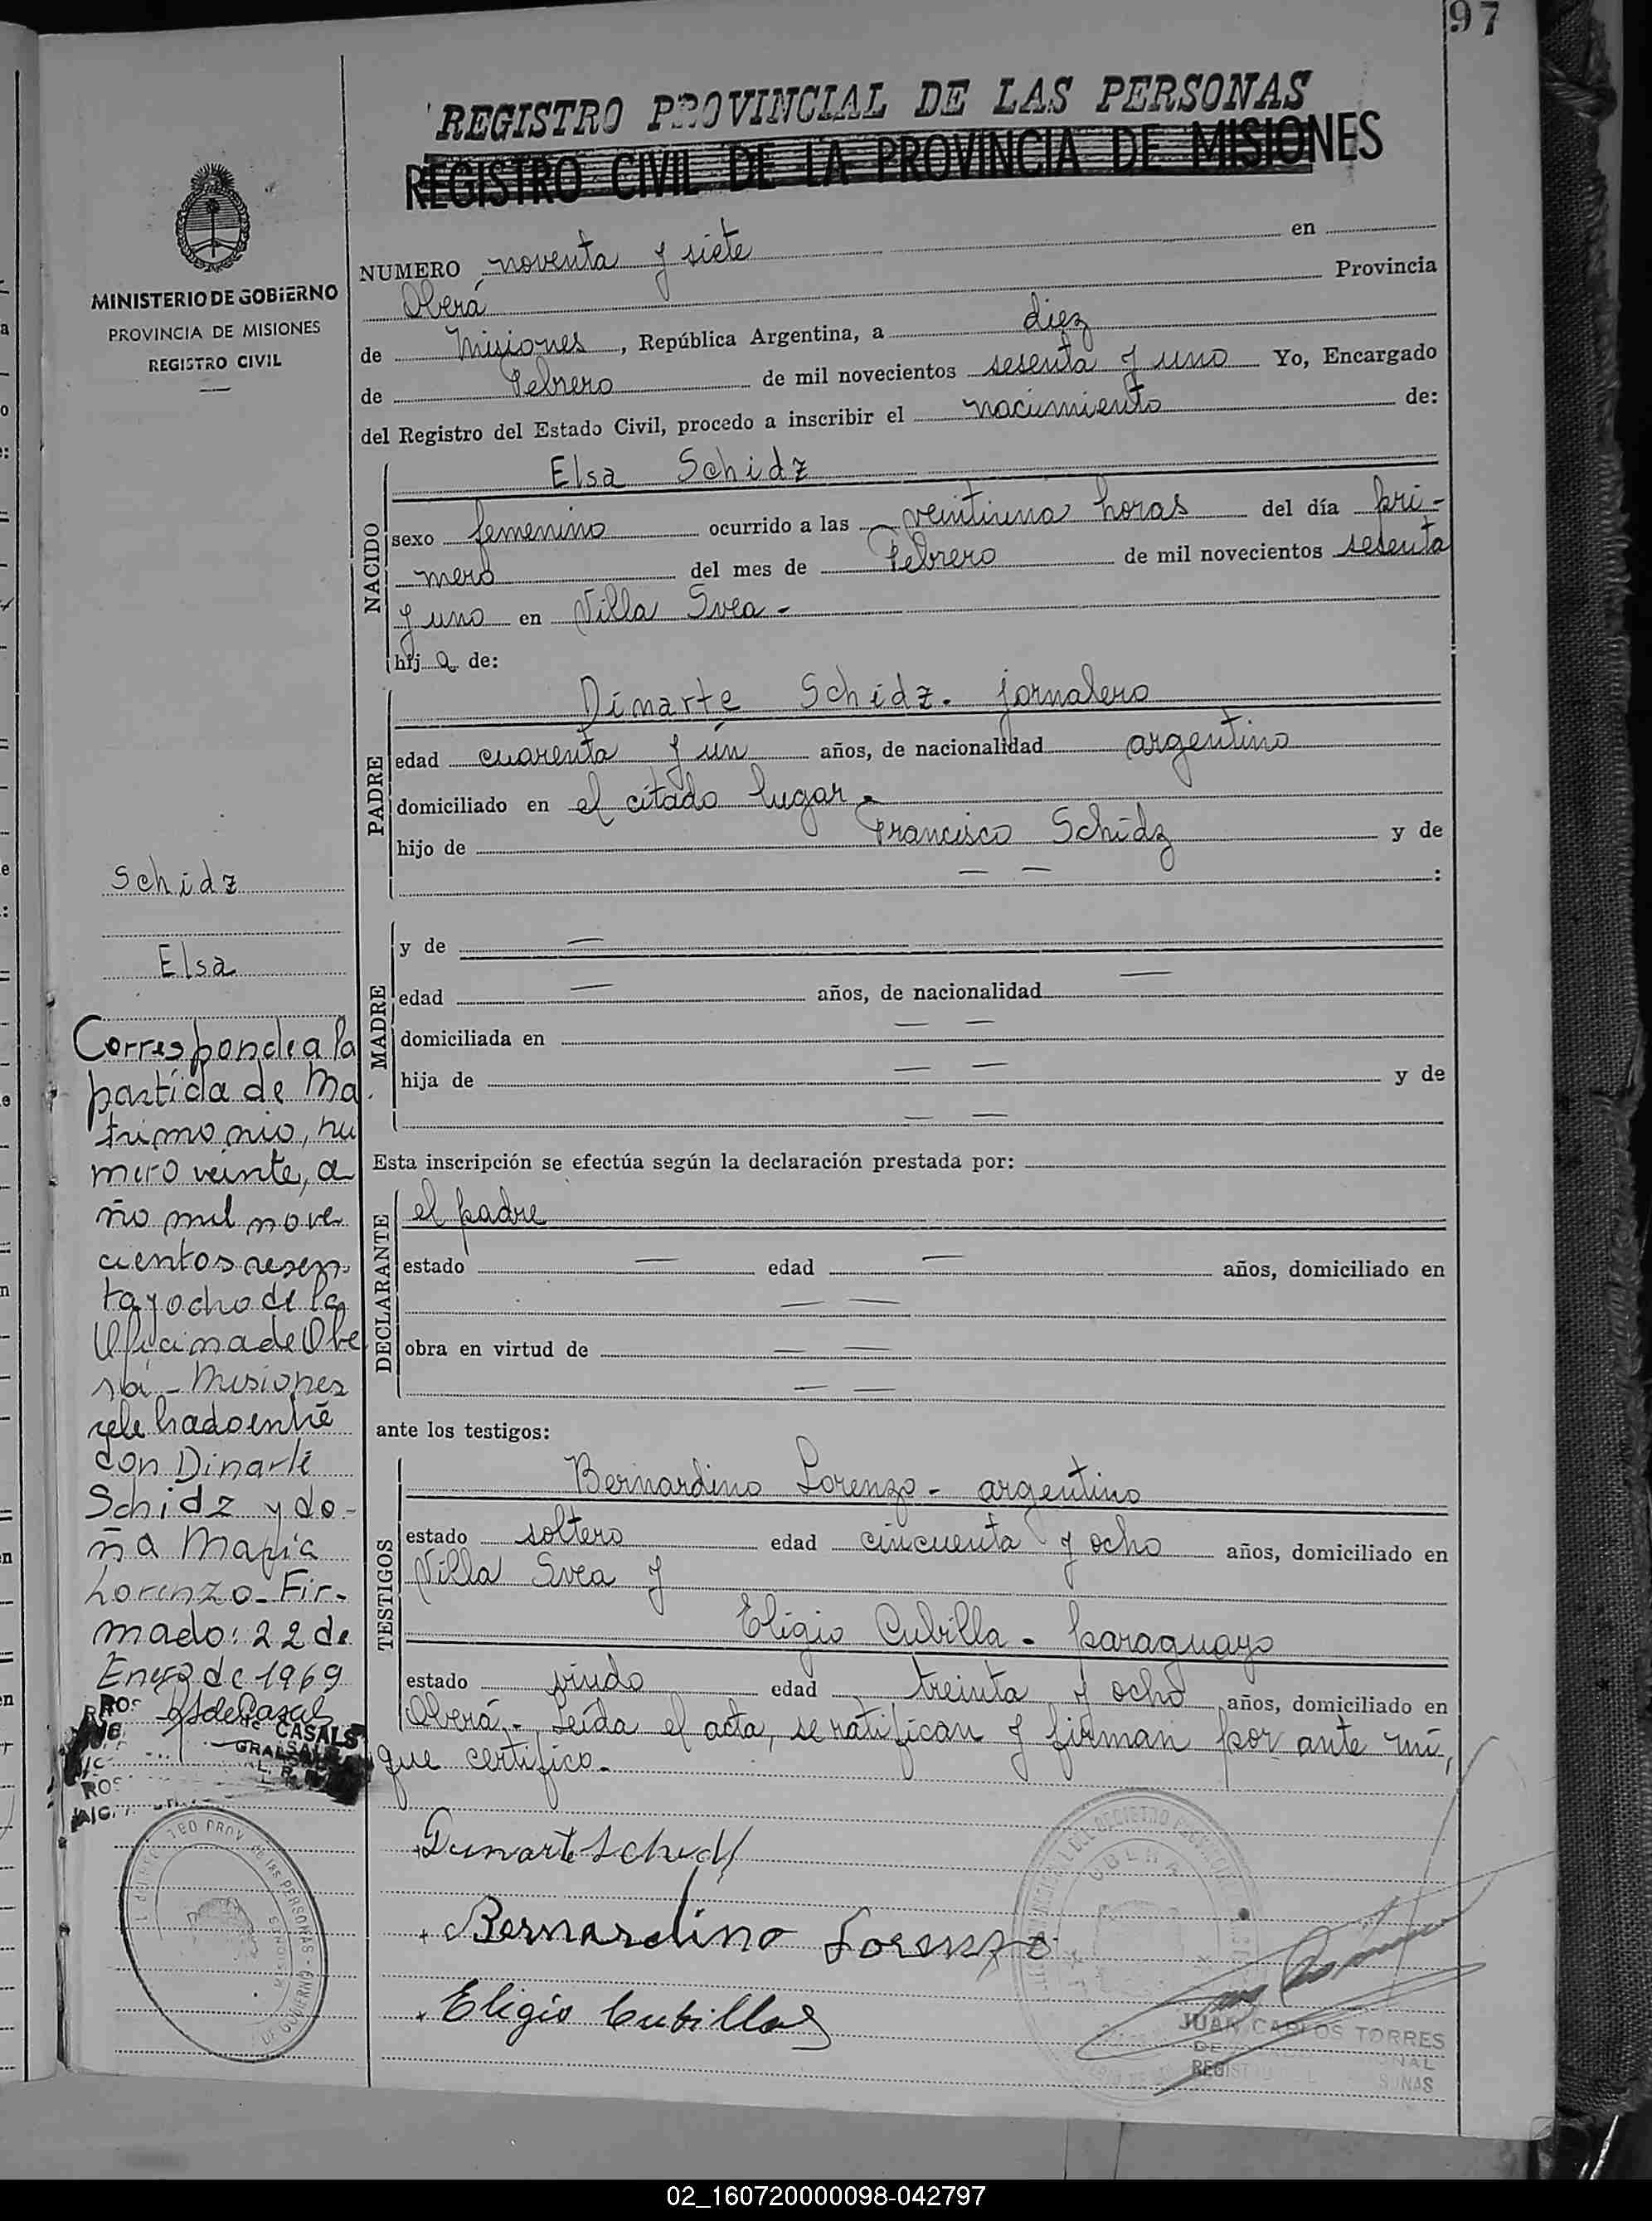 97
REGISTRO PROVINCIAL DE LAS PERSONAS
REGISTRO CIVIL DE LA PROVINCIA DE MISIONES
MINISTERIO DE GOBIERNO
PROVINCIA DE MISIONES
REGISTRO CIVIL
NUMERO noventa y siete en
Oberá Provincia
de Misiones, República Argentina, a diez
de Febrero de mil novecientos sesenta y uno Yo, Encargado
del Registro del Estado Civil, procedo a inscribir el nacimiento de:
NACIDO
Elsa Schidz
sexo femenino ocurrido a las veintiuna horas del día pri-
mero del mes de Febrero de mil novecientos sesenta
y uno en Villa Svea -
hij a de:
PADRE
Dinarte Schidz - jornalero
edad cuarenta y un años, de nacionalidad argentino
domiciliado en el citado lugar -
hijo de Francisco Schidz y de
— — :
MADRE
y de —
edad — años, de nacionalidad —
domiciliada en — —
hija de — — y de
— —
Esta inscripción se efectúa según la declaración prestada por:
DECLARANTE
el padre
estado — edad — años, domiciliado en
— —
obra en virtud de — —
— —
ante los testigos:
TESTIGOS
Bernardino Lorenzo - argentino
estado soltero edad cincuenta y ocho años, domiciliado en
Villa Svea y
Eligio Cubilla - paraguayo
estado viudo edad treinta y ocho años, domiciliado en
Oberá - Leída el acta, se ratifican y firman por ante mí,
que certifico.
Schidz
Elsa
Corresponde a la
partida de Ma
trimonio, nu
mero veinte, a
ño mil nove
cientos sesen
ta y ocho de la
Oficina de Obe
rá - Misiones
celebrado entre
don Dinarte
Schidz y do-
ña Maria
Lorenzo - Fir-
mado: 22 de
Enero de 1969
CASALS
Dinarte Schidz
Bernardino Lorenzo
Eligio Cubillas
OBERA
JUAN CARLOS TORRES
02_160720000098-042797